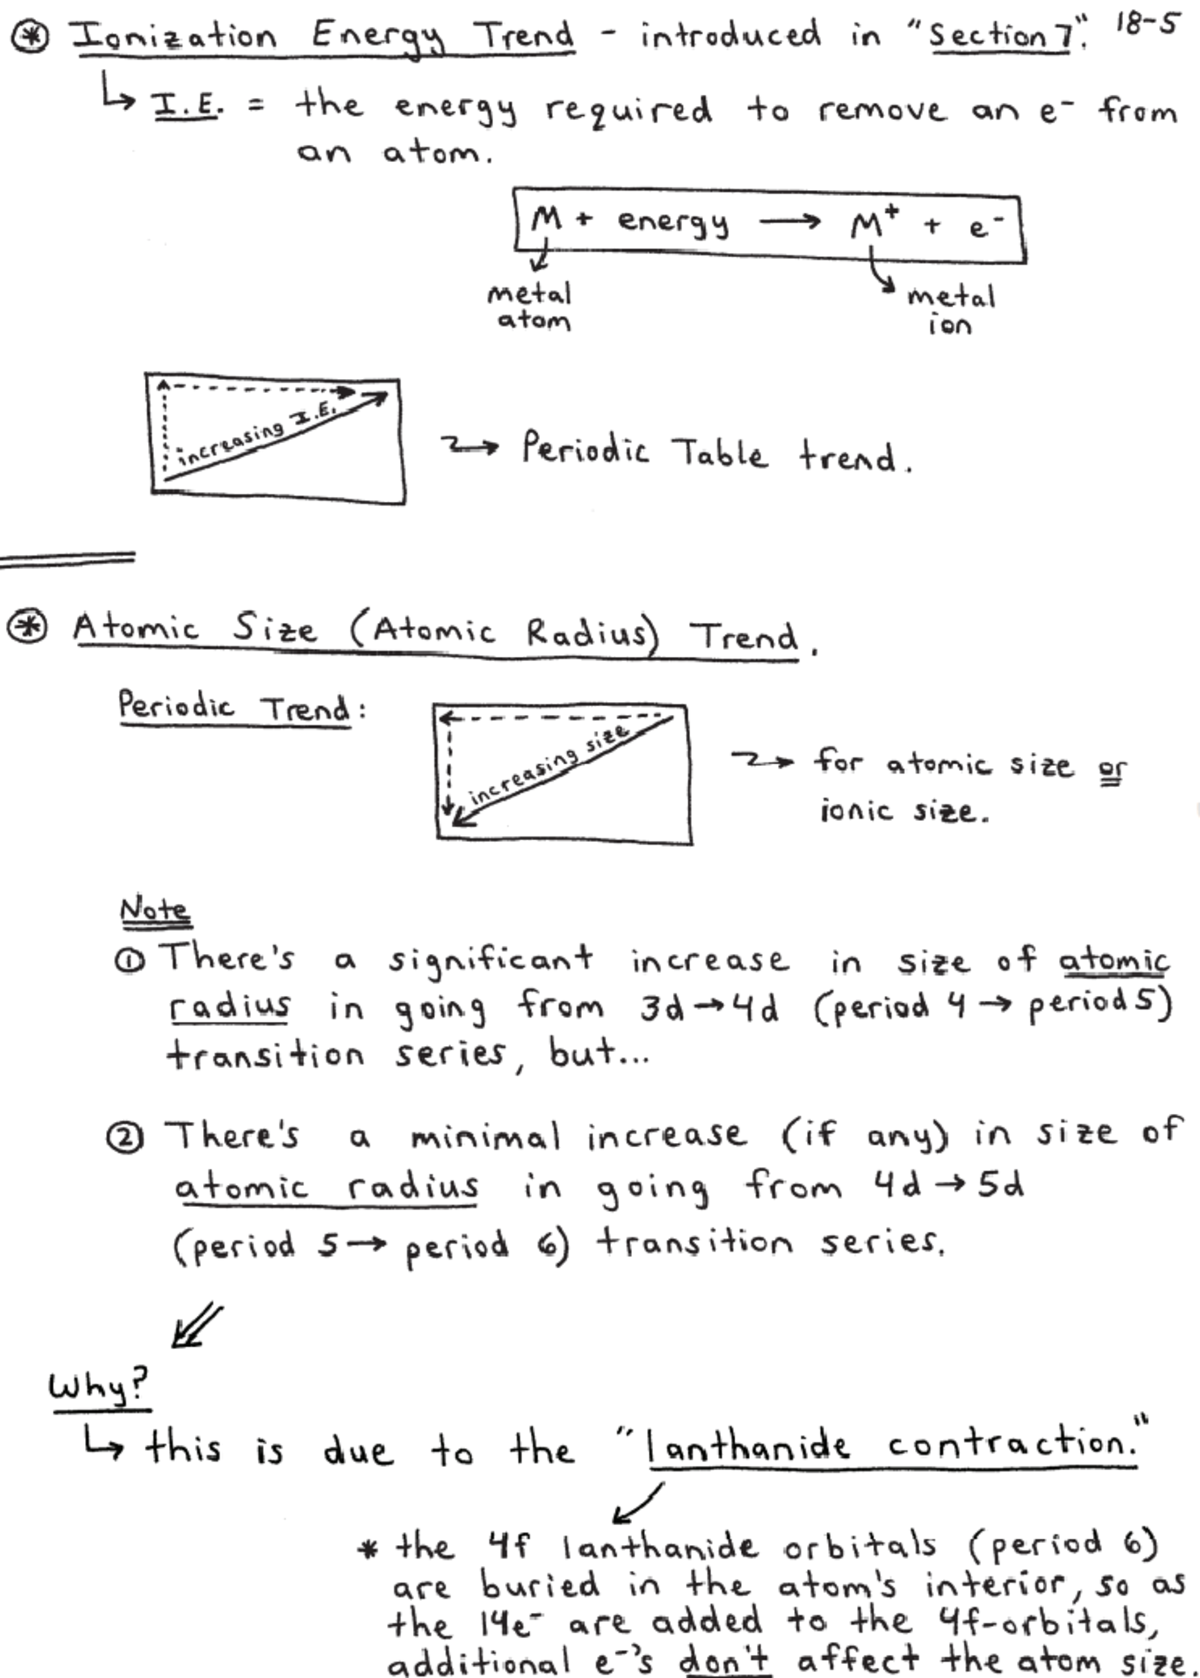 ⊛ Ionization Energy Trend - introduced in "Section 7". 18-5
↳ I.E. = the energy required to remove an e⁻ from
an atom.
M + energy ⟶ M⁺ + e⁻
metal
atom
metal
ion
increasing I.E.
⇝ Periodic Table trend.
⊛ Atomic Size (Atomic Radius) Trend.
Periodic Trend:
increasing size
⇝ for atomic size or
ionic size.
Note
① There's a significant increase in size of atomic
radius in going from 3d→4d (period 4 → period 5)
transition series, but...
② There's a minimal increase (if any) in size of
atomic radius in going from 4d → 5d
(period 5 → period 6) transition series.
Why?
↳ this is due to the "lanthanide contraction."
* the 4f lanthanide orbitals (period 6)
are buried in the atom's interior, so as
the 14e⁻ are added to the 4f-orbitals,
additional e⁻'s don't affect the atom size.